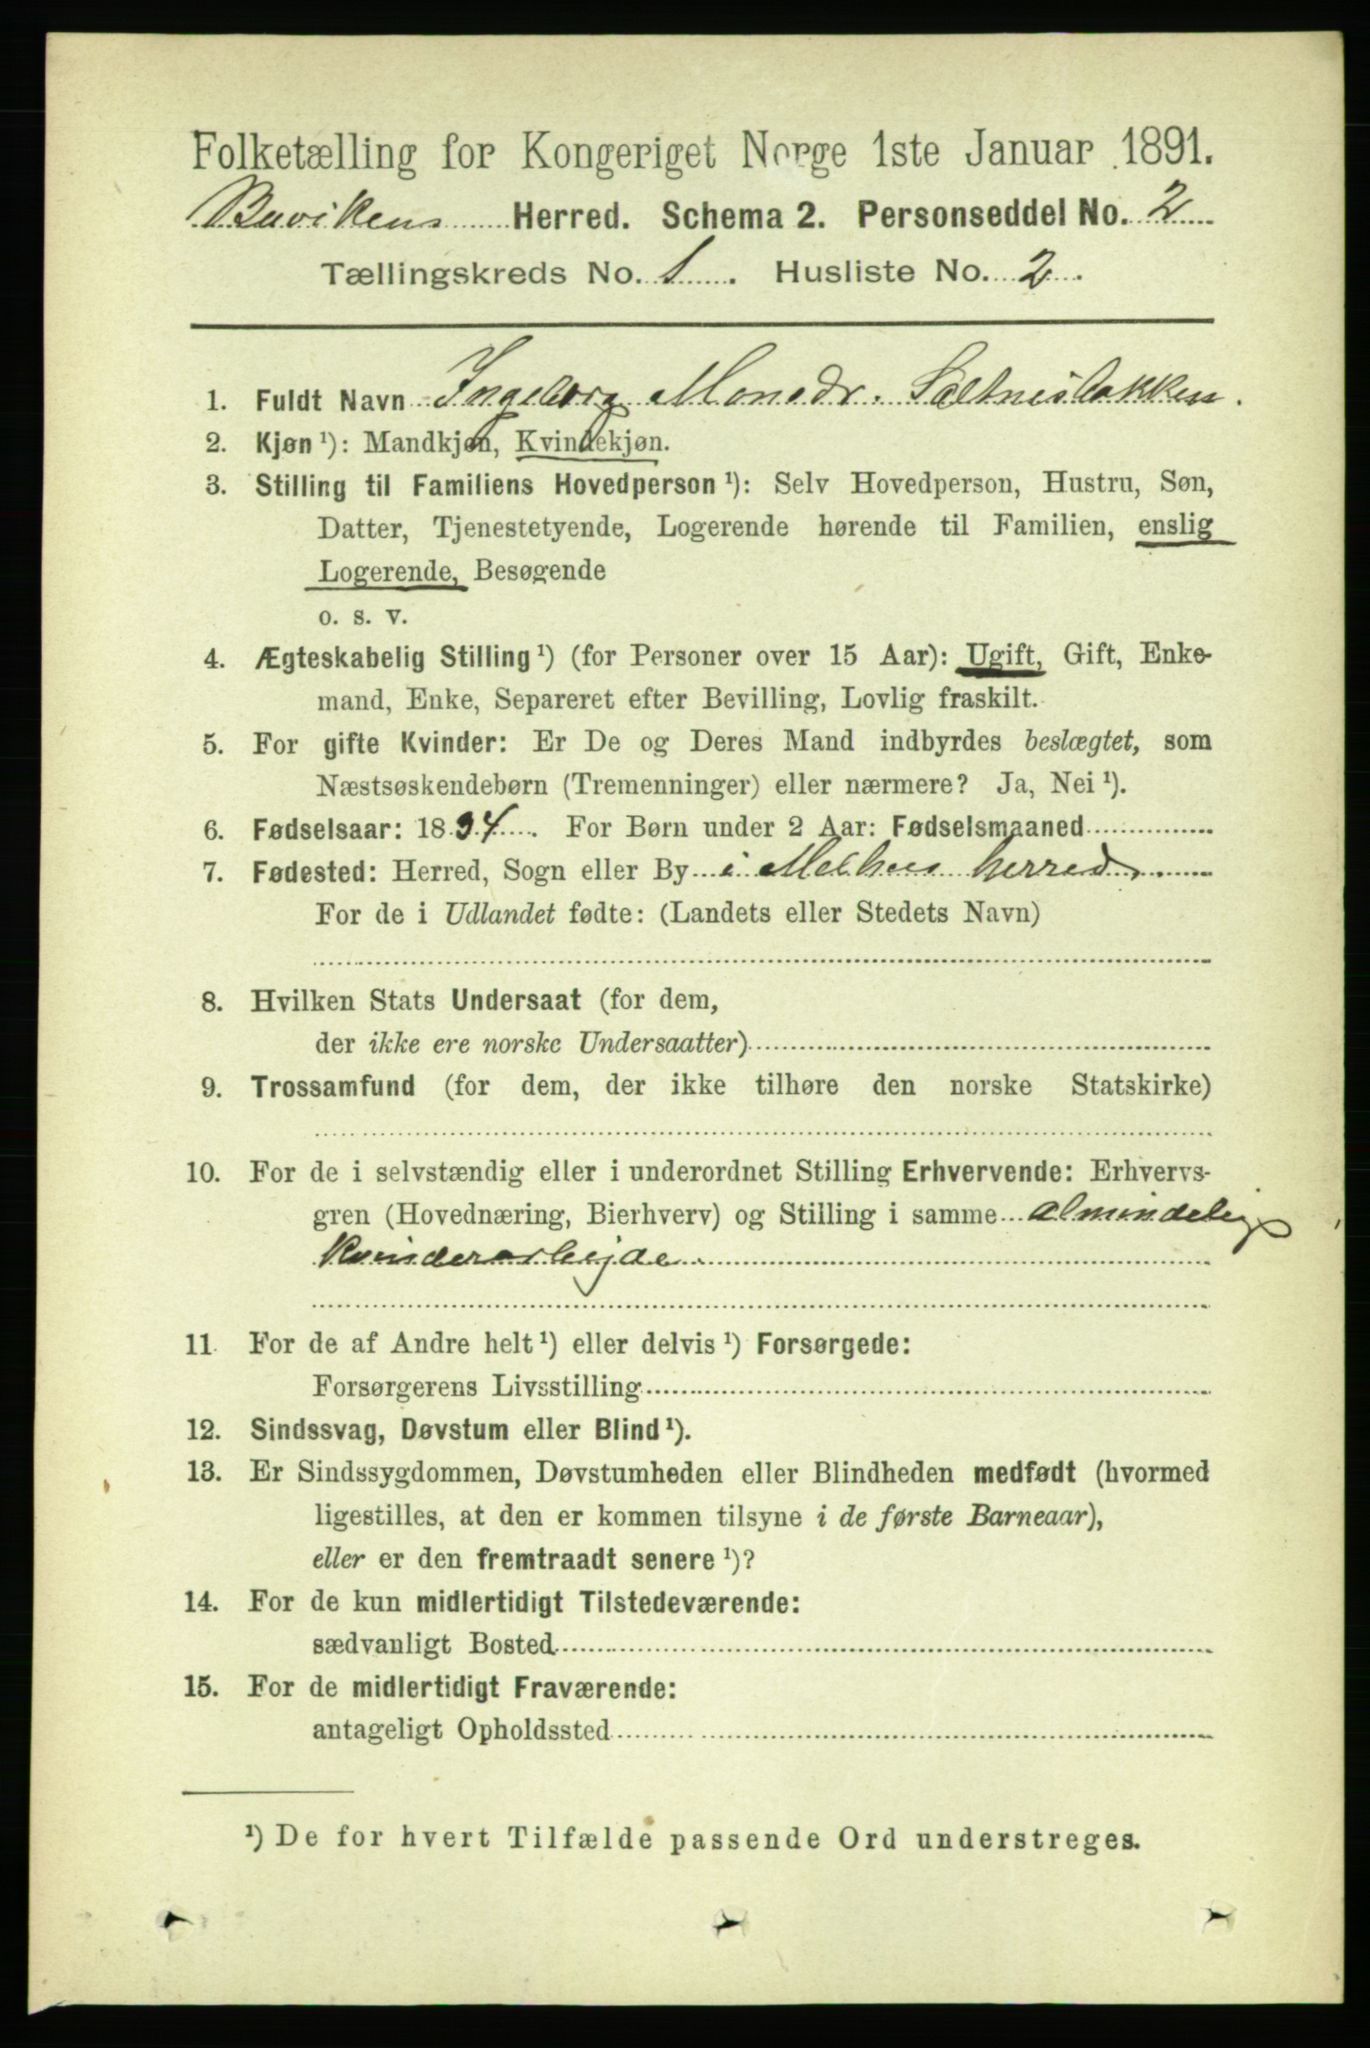 Folketælling for Kongeriget Norge 1ste Januar 1891.
Buvikens Herred. Schema 2. Personseddel No. 2
Tællingskreds No. 1. Husliste No. 2.
1. Fuldt Navn Ingeborg Monsdr. Saltnisbakken.
2. Kjøn ¹): Mandkjøn, Kvindekjøn.
3. Stilling til Familiens Hovedperson ¹): Selv Hovedperson, Hustru, Søn,
Datter, Tjenestetyende, Logerende hørende til Familien, enslig
Logerende, Besøgende
o. s. v.
4. Ægteskabelig Stilling ¹) (for Personer over 15 Aar): Ugift, Gift, Enke-
mand, Enke, Separeret efter Bevilling, Lovlig fraskilt.
5. For gifte Kvinder: Er De og Deres Mand indbyrdes beslægtet, som
Næstsøskendebørn (Tremenninger) eller nærmere? Ja, Nei ¹).
6. Fødselsaar: 1834. For Børn under 2 Aar: Fødselsmaaned
7. Fødested: Herred, Sogn eller By i Melhus herred
For de i Udlandet fødte: (Landets eller Stedets Navn)
8. Hvilken Stats Undersaat (for dem,
der ikke ere norske Undersaatter)
9. Trossamfund (for dem, der ikke tilhøre den norske Statskirke)
10. For de i selvstændig eller i underordnet Stilling Erhvervende: Erhvervs-
gren (Hovednæring, Bierhverv) og Stilling i samme almindelig
Kvinderarbejde
11. For de af Andre helt ¹) eller delvis ¹) Forsørgede:
Forsørgerens Livsstilling
12. Sindssvag, Døvstum eller Blind ¹).
13. Er Sindssygdommen, Døvstumheden eller Blindheden medfødt (hvormed
ligestilles, at den er kommen tilsyne i de første Barneaar),
eller er den fremtraadt senere ¹)?
14. For de kun midlertidigt Tilstedeværende:
sædvanligt Bosted
15. For de midlertidigt Fraværende:
antageligt Opholdssted
¹) De for hvert Tilfælde passende Ord understreges.